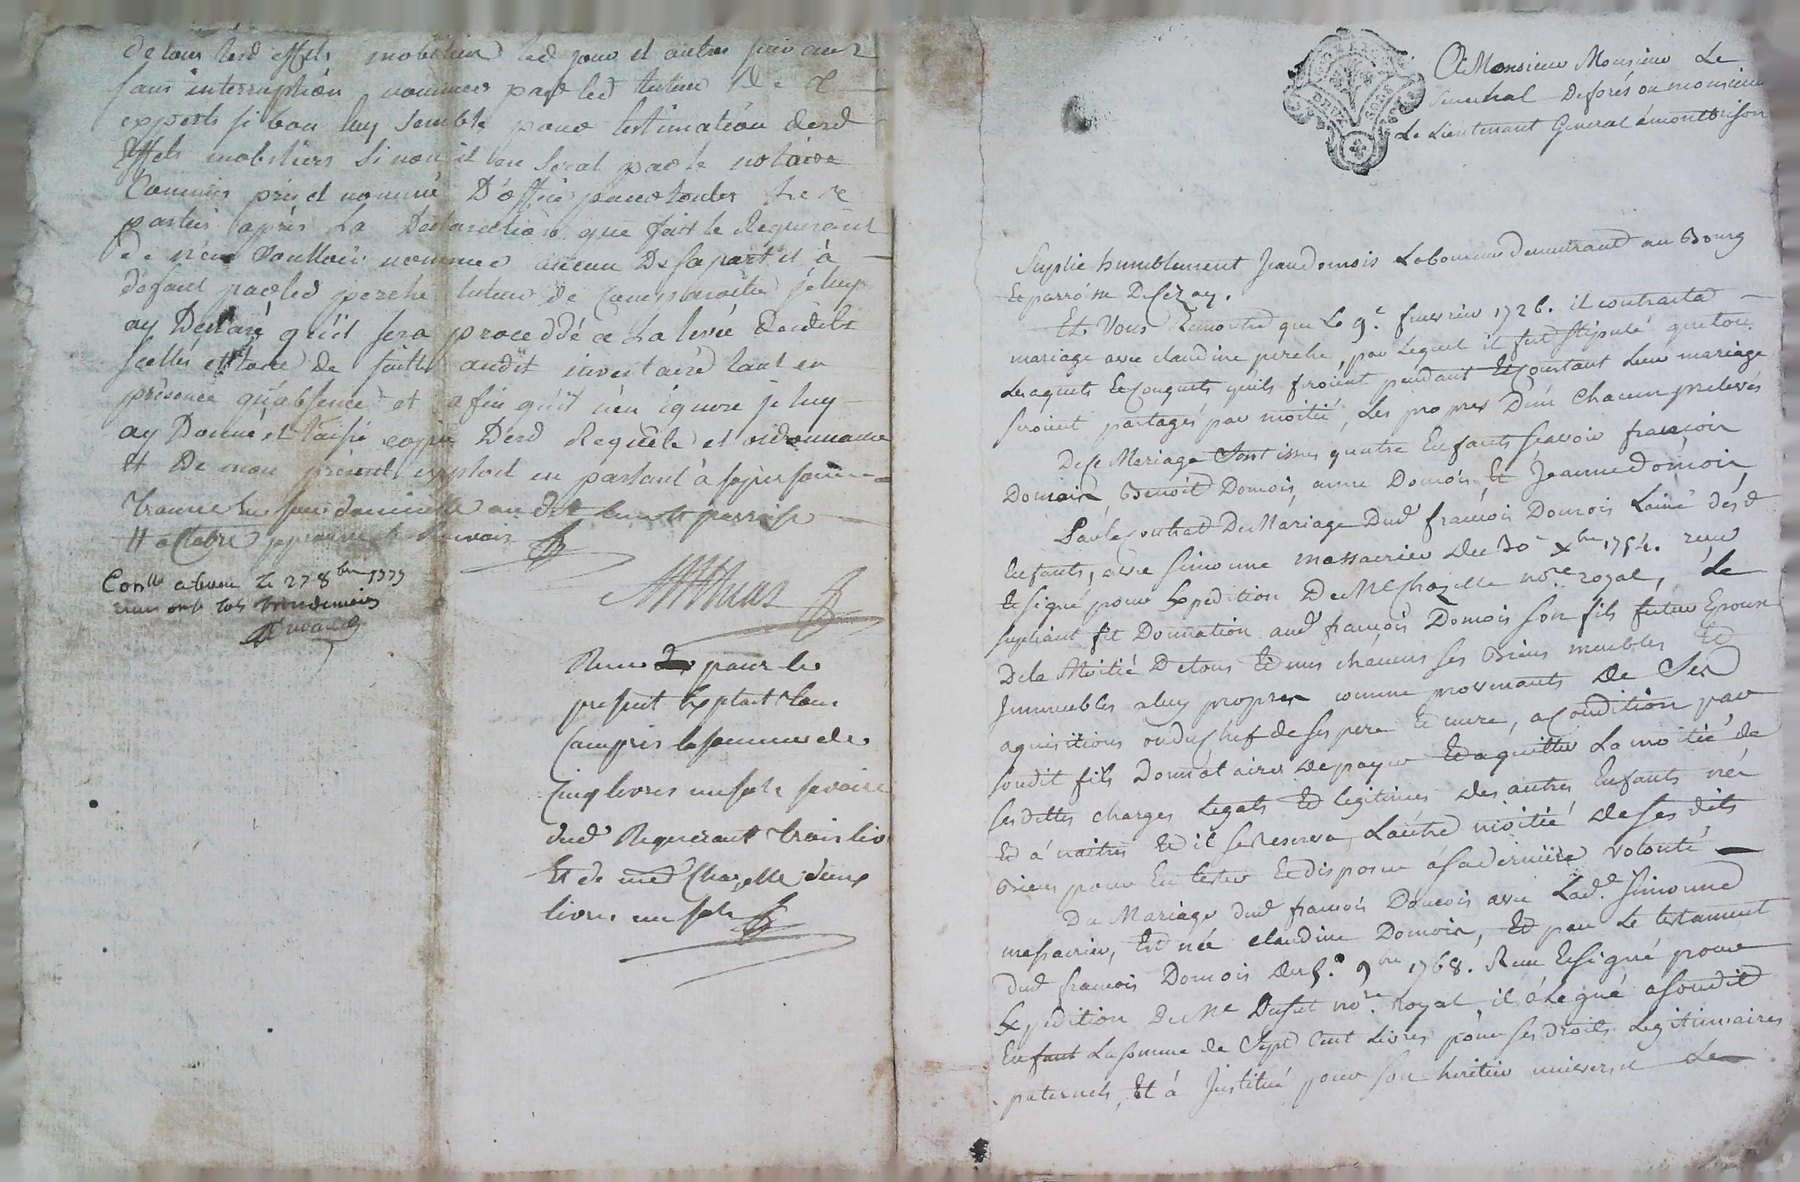 de tous lesd effets mobiliers led jour et autres suivants
sans interruption nommer par led tuteur de
experts si bon luy semble pour lestimation desd
Effets mobiliers sinon il en sera par le notaire
Commis pris et nommé D'office pour toutes les
parties après La Declaration que fait le Requerant
de n'en Voulloir nommer aucun De sa part et à
défaut par led perche tuteur de comparoitre je luy
ay Declaré qu'il sera proceddé a La levée desdits
scellés et de suitte audit inventaire tant en
présence qu'absence et afin qu'il n'en ignore je luy
ay Donné et laissé copie Desd Requête et ordonnance
Et De mon présent exploit en parlant à sa personne
trouvé en son domicille audit parroisse
Conlle a le 27 8bre 1773
Reçu pour le
present Exploit
compris la somme de
Cinq livres un sols savoir
dud Requerant trois liv
Et de med Chazelle deux
livres un sols
A Monsieur Monsieur Le
Senechal De forés ou monsieur
Le Lieutenant General a montbrison
Suplie humblement Jean domois Laboureur demeurant au Bourg
Et parroisse De Cezay.
Et Vous Remontre que Le 9e. fuevrier 1726. il contracta
mariage avec claudine perche, par Lequel il fut stipulé que tous
Les aquets Et Conquets qu'ils feroient pendant Et Constant Leur mariage
seroient partagés par moitié, Les propres D'un Chacun prelevés
De Ce Mariage Sont issus quatre Enfants sçavoir françois
Domois, Benoit Domois, anne Domois, Et Jeanne domois
Par le Contrat De Mariage Dud françois Domois Lainé desd
Enfants, avec simonne massacrier du 30e xbre 1754. reçu
Et signé pour Expedition De Me Chazelle nore royal, Le
supliant fit Donnation aud françois Domois son fils futur Epoux
De la Moitié De tous Et uns chacuns ses Biens meubles Et
Immeubles a luy propres comme provenants de Ses
aquisitions ou du Chef de ses pere Et mere, a Condition par
sondit fils Donnataire De payer Et aquitter La moitié de
sesdittes charges Legats Et legitimes des autres Enfants néé
Et a naitre Et il se reserva Lautre moitié de ses dits
Biens pour En tester Et disposer a sa derniere volonté
Du Mariage dud françois Domois avec Lade. Simonne
massacrier, Est née claudine Domois, Et par Le testament
dud françois Domois du 5e 9bre 1768. Reçu Et signé pour
Expedition De Me Dusat nore. Royal, il a Legué a Sondit
Enfant La somme de Sept Cent Livres pour ses droits Legitimaires
paternels, Et à Institué pour son heritier universel Le